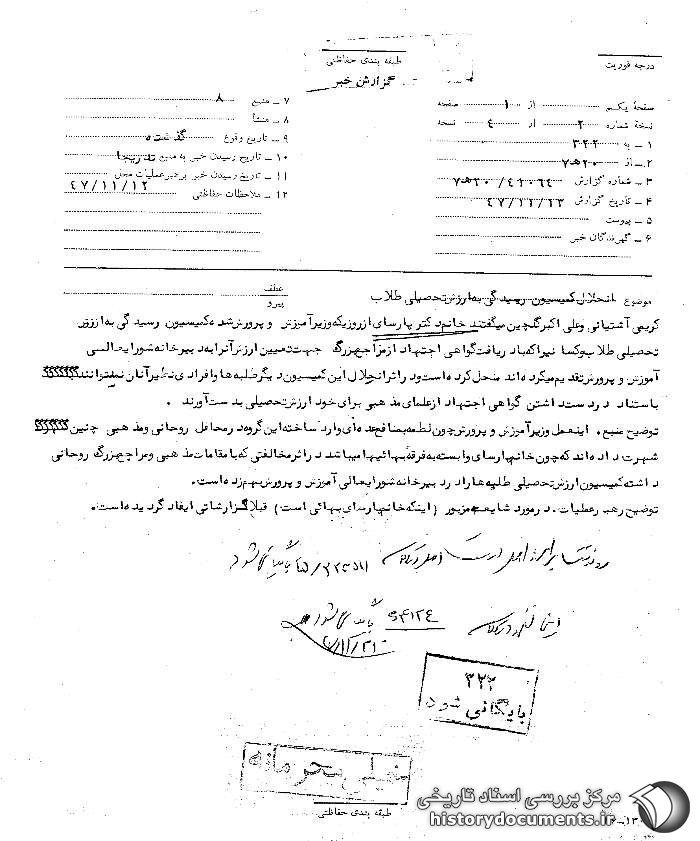 طبقه بندی حفاظتی
گزارش خبر
درجه فوریت
صفحهٔ یکم از ۱ صفحه
نسخهٔ شماره ۲ از ٤ نسخه
۱ - به ۳۲۲
۲ - از ۲۰ ﻫ ۷
۳ - شماره گزارش ۴۲۰٦٤ / ۲۰ ﻫ ۷
۴ - تاریخ گزارش ٤۷/۱۱/۱۳
۵ - پیوست
۶ - گیرندگان خبر
۷ - منبع ۸
۸ - منشأ
۹ - تاریخ وقوع گذشته
۱۰ - تاریخ رسیدن خبر به منبع تدریجا
۱۱ - تاریخ رسیدن خبر به رهبر عملیات محل ٤۷/۱۱/۱۲
۱۲ - ملاحظات حفاظتی
موضوع انحلال کمیسیون رسیدگی به ارزش تحصیلی طلاب
عطف
پیرو
کریمی آشتیانی وعلی اکبر گلچین میگفتند خانم دکتر پارسای ازروزیکه وزیرآموزش و پرورش شده کمیسیون رسیدگی به ارزش
تحصیلی طلاب وکسانیراکه با دریافت گواهی اجتهاد ازمراجع بزرگ جهت تعیین ارزش آنرابه دبیرخانه شورایعالی
آموزش و پرورش تقدیم میکرده اند منحل کرده است ودراثرانحلال این کمیسیون دیگرطلبه ها وافرادی نظیرآنان نمیتوانند
با ستناد دردست داشتن گواهی اجتهاد ازعلمای مذهبی برای خود ارزش تحصیلی بدست آورند .
توضیح منبع . اینعمل وزیرآموزش و پرورش چون لطمه بمنافع عده ای وارد ساخته این گروه درمحافل روحانی ومذهبی چنین
شهرت داده اند که چون خانم پارسای وابسته به فرقه بهائیها میباشد دراثرمخالفتی که با مقامات مذهبی ومراجع بزرگ روحانی
داشته کمیسیون ارزش تحصیلی طلبه هارا در دبیرخانه شورایعالی آموزش و پرورش بهم زده است.
توضیح رهبرعملیات. درمورد شایعه مزبور (اینکه خانم پارسای بهائی است) قبلا گزارشاتی ایفاد گردیده است.
۳۲۲
بایگانی شود
خیلی محرمانه
طبقه بندی حفاظتی
مرکز بررسی اسناد تاریخی
historydocuments.ir